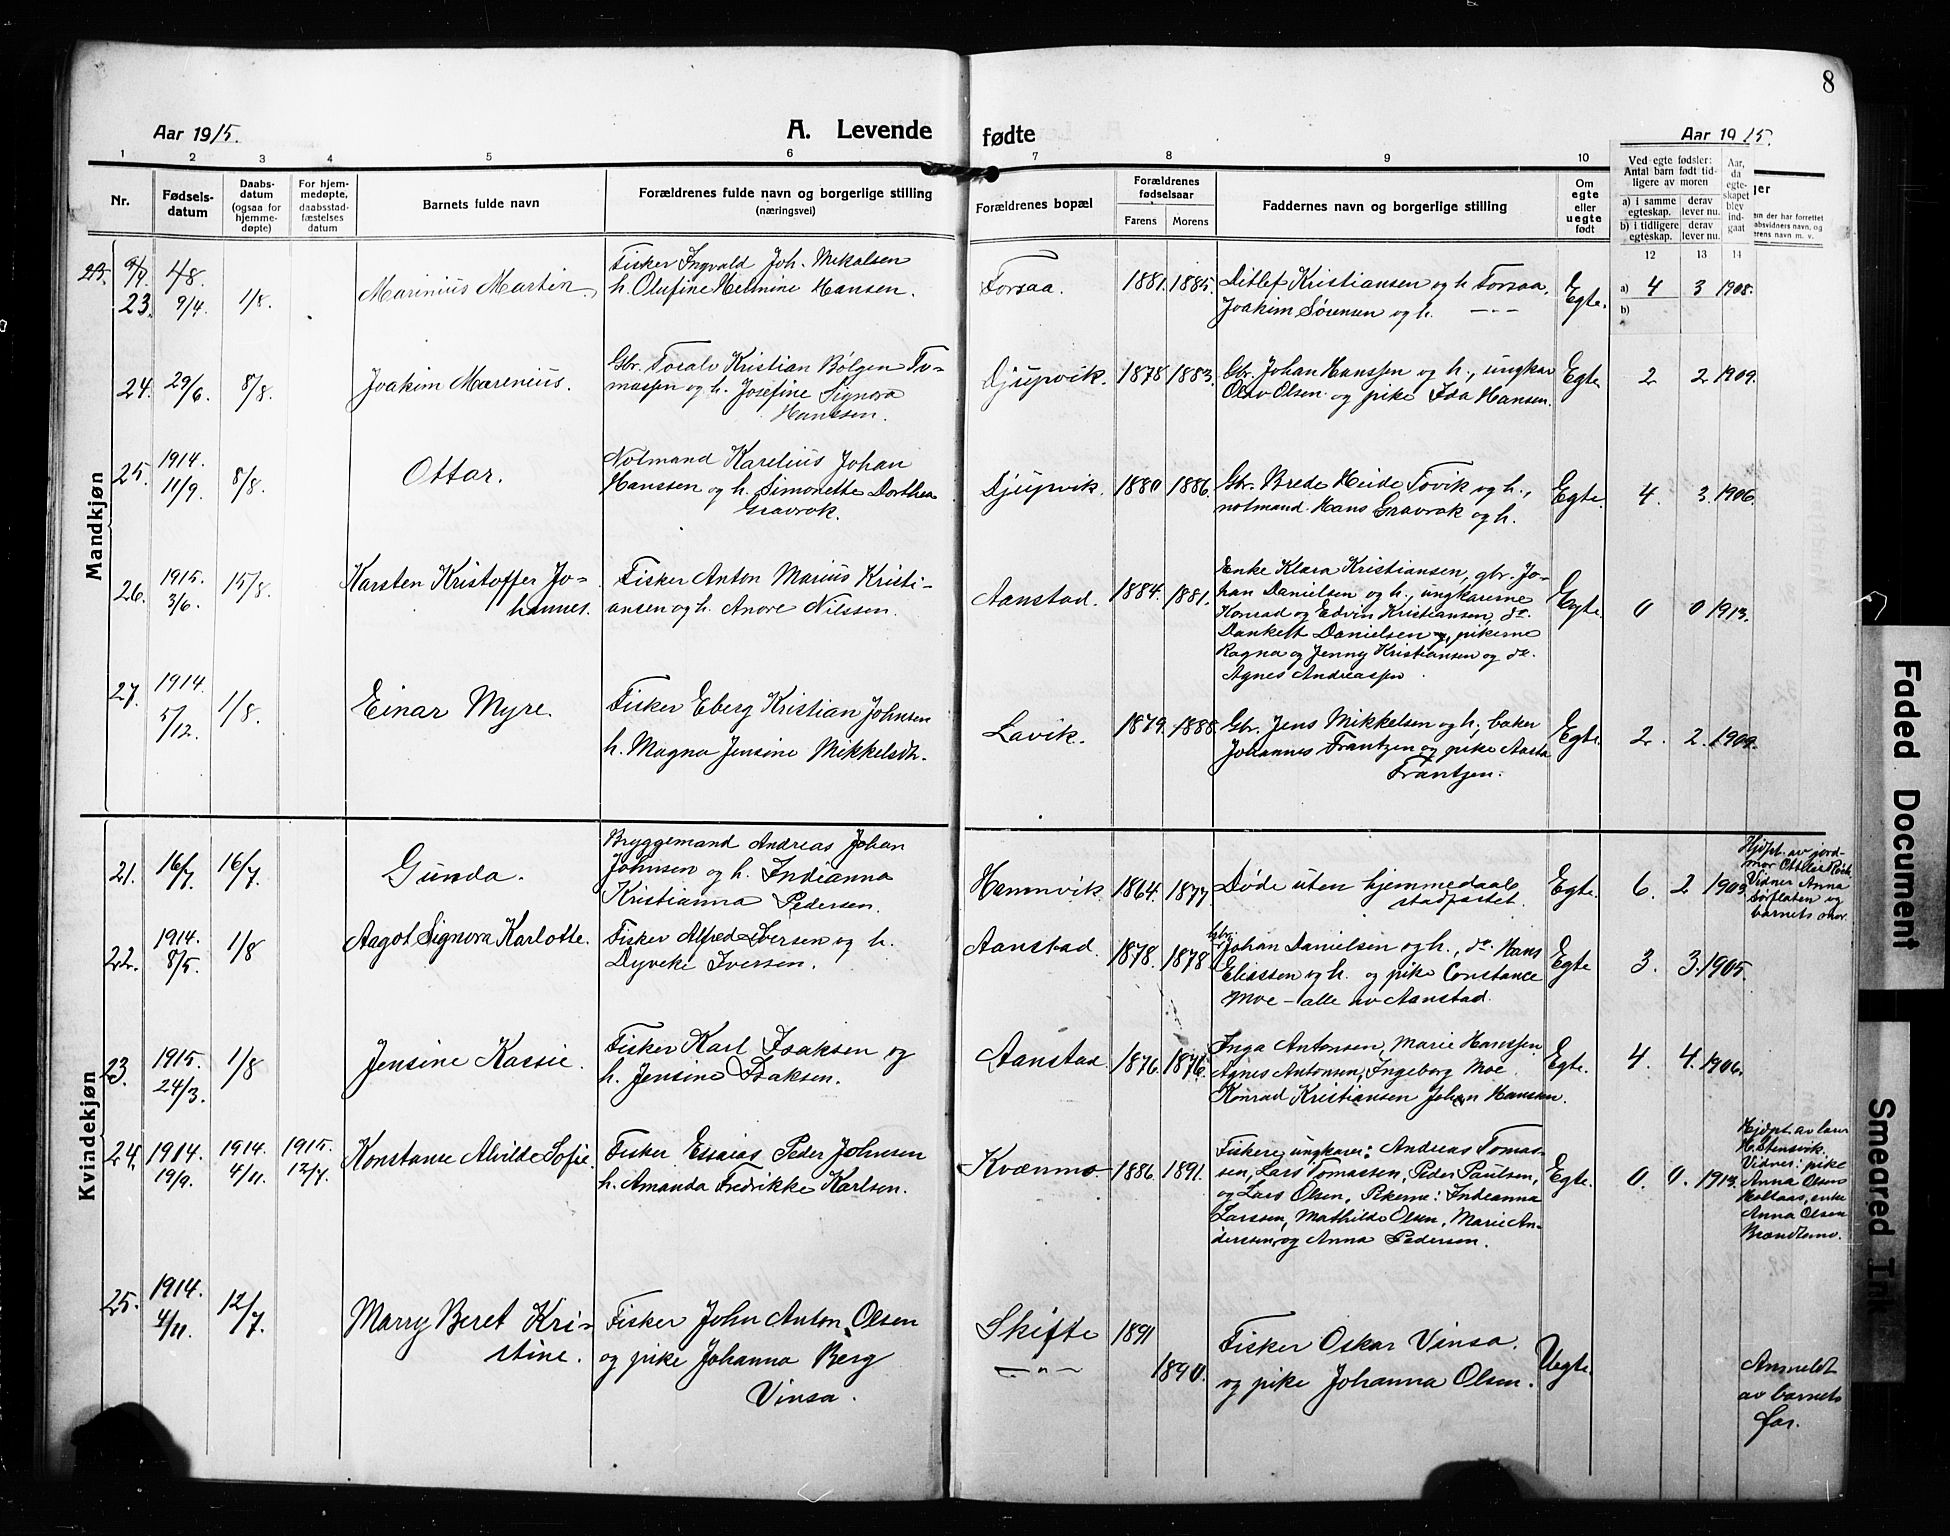 8
Aar 1915.
A. Levende
fødte
Aar 1915.
1 2 3 4 5 6 7 8 9 10
Nr.
Fødsels-
datum
Daabs-
datum
(ogsaa for
hjemme-
døpte)
For hjem-
medøpte,
daabsstad-
fæstelses
datum
Barnets fulde navn
Forældrenes fulde navn og borgerlige stilling
(næringsvei)
Forældrenes bopæl
Forældrenes
fødselsaar
Farens Morens
Faddernes navn og borgerlige stilling
Om
egte
eller
uegte
født
Ved egte fødsler:
Antal barn født tid-
ligere av moren
a) i samme
egteskap.
derav
lever nu.
b) i tidligere
egteskap.
derav
lever nu.
Aar,
da
egte-
skapet
blev
ind-
gaat
12 13 14
Mandkjøn
23. 9/4. 1/8.
Marinius Martin.
Fisker Ingvald Joh. Mikalsen
h. Olufine Helmine Hansen.
Forsaa.
1881. 1885.
Ditlef Kristiansen og h Forsaa,
Joakim Sørensen og h. — " —
Egte.
a) 4 3 1908.
b)
24. 29/6. 8/8.
Joakim Marenius.
Gbr. Toralv Kristian Bølgen To-
massen og h. Josefine Signora
Hansen.
Djupvik.
1878 1883.
Gbr. Johan Hanssen og h., ungkar
Olav Olsen og pike Ida Hansen.
Egte
2 2 1909.
25. 1914. 11/9. 8/8.
Ottar.
Notmand Karelius Johan
Hanssen og h. Simonette Dorthea
Gravrok.
Djupvik.
1880 1886.
Gbr. Brede Heide Tovik og h.,
notmand Hans Gravrok og h.
Egte.
4. 3. 1906.
26. 1915. 3/6. 15/8.
Karsten Kristoffer Jo-
hannes.
Fisker Anton Marius Kristi-
ansen og h. Anore Nilssen.
Aanstad.
1884. 1881.
Enke Klara Kristiansen, gbr. Jo-
han Danielsen og h., ungkarerne
Konrad og Edvin Kristiansen, do.
Dankert Danielsen og pikerne
Ragna og Jenny Kristiansen og do.
Agnes Andreassen.
Egte.
0 0 1913.
27. 1914. 5/12. 1/8.
Einar Myre.
Fisker Eberg Kristian Johnsen
h. Magna Jensine Mikkelsdtr.
Lavik.
1879. 1888.
Gbr. Jens Mikkelsen og h., baker
Johannes Frantzen og pike Aasta
Frantzen.
Egte.
2. 2. 1909.
Kvindekjøn
21. 16/7. 16/7.
Gunda.
Bryggemand Andreas Johan
Johnsen og h. Indianna
Kristianna Pedersen.
Hamnvik.
1864. 1877.
Døde uten hjemmedaabs
stadfæstet.
Egte.
6. 2 1903.
Hjdpt. av jord-
mor
Vidner Anna
Sørflaten og
barnets mor.
22. 1914. 8/5. 1/8
Aagot Signora Karlotte.
Fisker Alfred Iversen og h.
Dyveke Iversen.
Aanstad.
1878. 1878
Gbr. Johan Danielsen og h., do. Hans
Eliassen og h. og pike Constance
Moe – alle av Aanstad.
Egte
3. 3. 1905.
23. 1915. 24/3. 1/8
Jensine Kassie.
Fisker Karl Isaksen og
h. Jensine Isaksen.
Aanstad.
1876. 1876.
Inga Antonsen, Marie Hanssen
Agnes Antonsen, Ingeborg Moe.
Konrad Kristiansen Johan Hanssen.
Egte.
4. 4. 1906.
24. 1914. 19/9. 1914. 4/11. 1915. 12/7.
Konstanse Alvilde Sofie.
Fisker Essaias Peder Johnsen
h. Amanda Fredrikke Karlsen.
Kvænmo.
1886. 1891.
Fiskere, ungkarer: Andreas Tomas-
sen, Lars Tomassen, Peder Paulsen,
og Lars Olsen, Pikerne: Indianna
Larssen, Mathilde Olsen, Marie An-
derssen, og Anna Pedersen.
Egte.
0. 0. 1913.
Hjdpt. av lærer
H. Stensvik.
Vidner: pike
Anna Olsen
Holtaas, enke
Anna Olsen
Brandtmo.
25. 1914. 4/11. 12/7.
Marry Beret Kri-
stine.
Fisker John Anton Olsen
og pike Johanna Berg
Vinsa.
Skifte
— " —
1891
1890.
Fisker Oskar Vinsa.
og pike Johanna Olsen.
Uegte.
Anmeldt
av barnets
far.
Faded Document
Smeared Ink